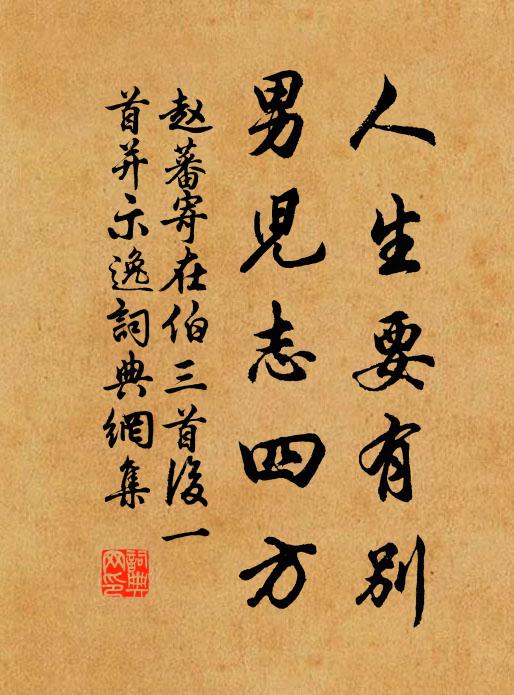 人生要有别
男児志四方
赵蕃寄在伯三首後一
首并示逸詞典網集
詞典
网印